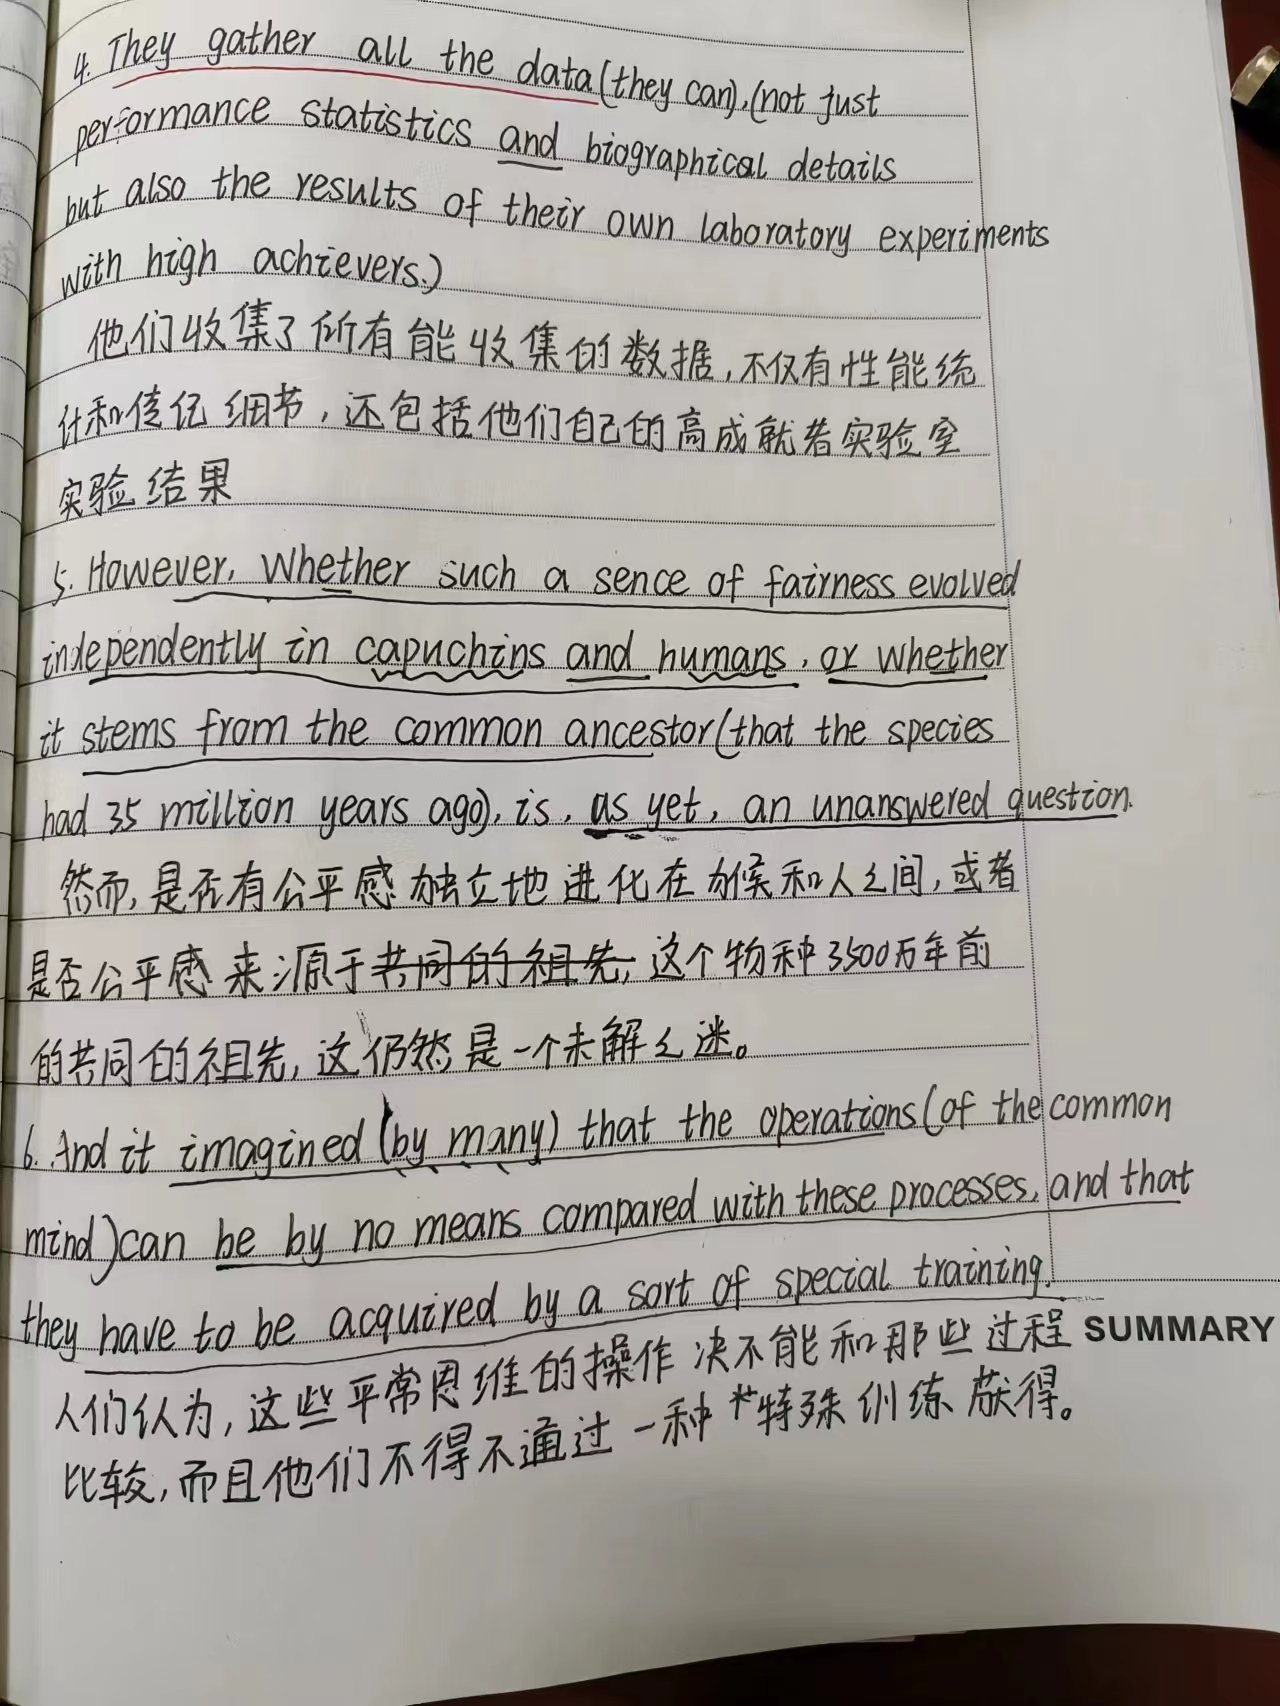 4. They gather all the data (they can), (not just
performance statistics and biographical details
but also the results of their own laboratory experiments
with high achievers.)
他们收集了所有能收集的数据,不仅有性能统
计和传记细节,还包括他们自己的高成就者实验室
实验结果
5. However, whether such a sence of fairness evolved
independently in capuchins and humans, or whether
it stems from the common ancestor (that the species
had 35 million years ago), is, as yet, an unanswered question.
然而,是否有公平感独立地进化在猴和人之间,或者
是否公平感来源于共同的祖先,这个物种3500万年前
的共同的祖先,这仍然是一个未解之迷。
6. And it imagined (by many) that the operations (of the common
mind) can be by no means compared with these processes, and that
they have to be acquired by a sort of special training.
人们认为,这些平常思维的操作决不能和那些过程
SUMMARY
比较,而且他们不得不通过一种特殊训练获得。